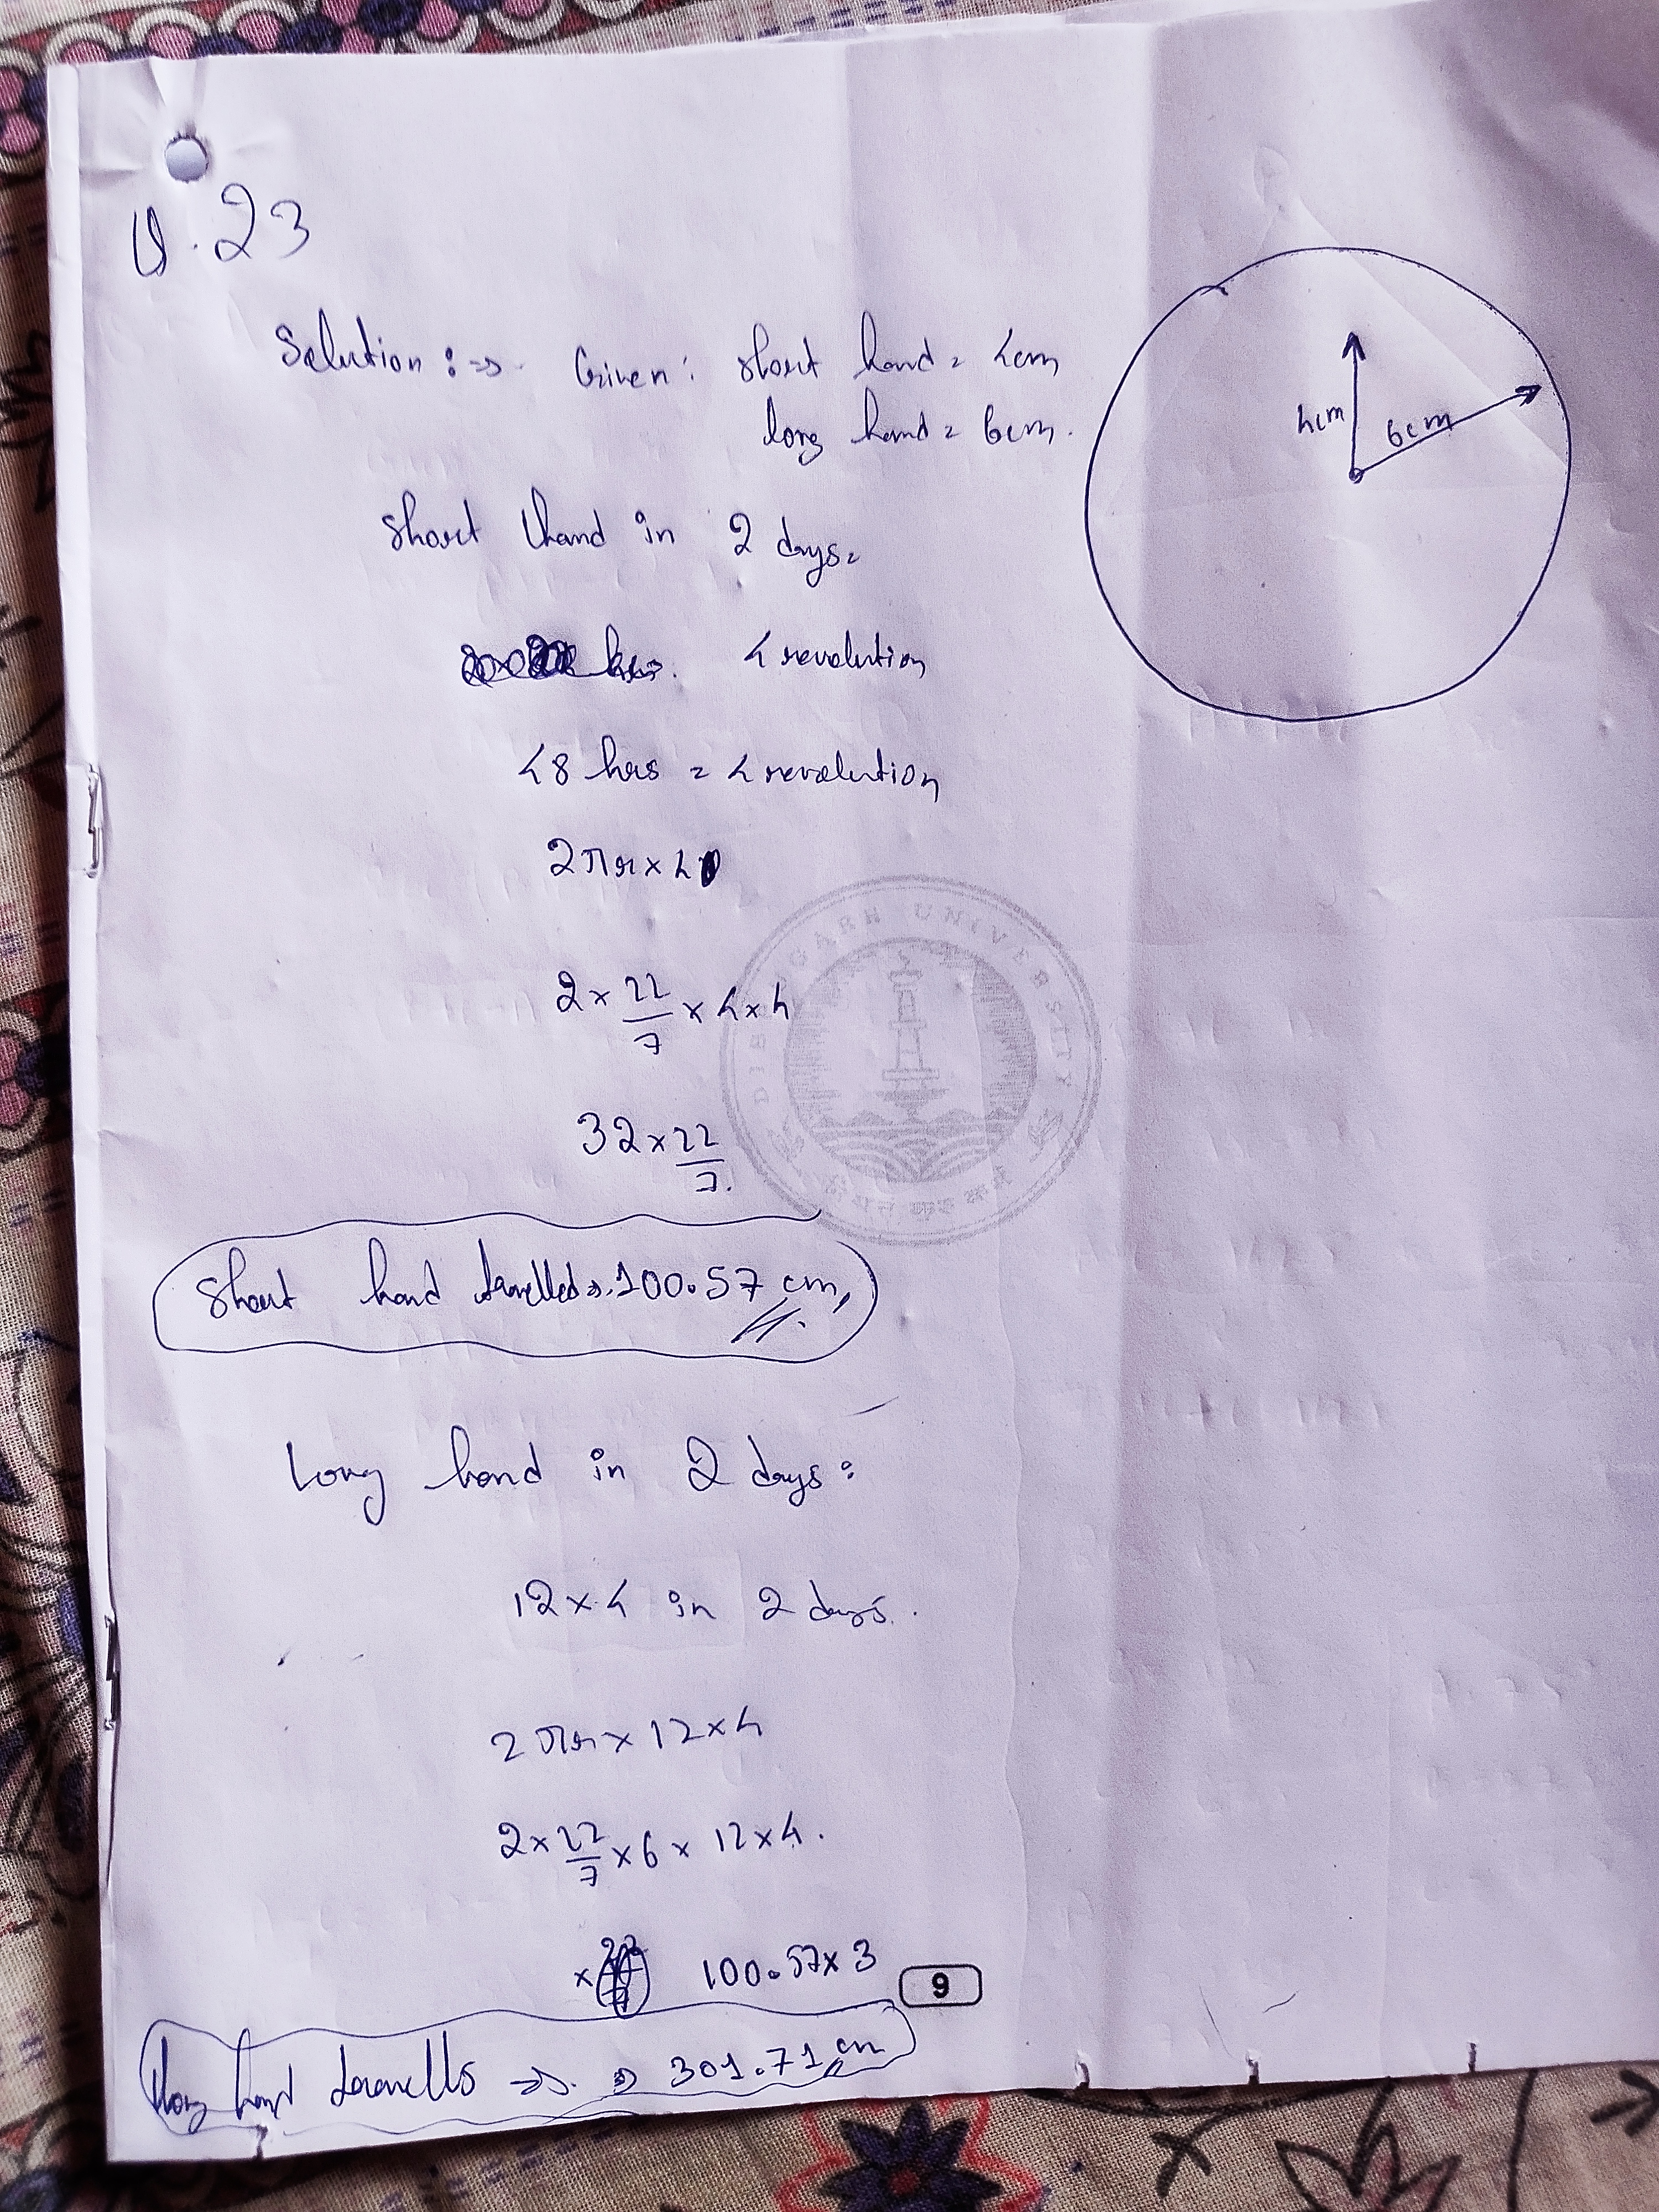 Q.23
Solution :⇒ Given: short hand = 4cm
long hand = 6cm.
4cm
6cm
Short hand in 2 days =
hrs. 4 revolution
48 hrs = 4 revolution
2πr × 4
2 × 22/7 × 4 × 4
32 × 22/7.
DIBRUGARH UNIVERSITY
Short hand travelled ⇒ 100.57 cm,
Long hand in 2 days :
12 × 4 in 2 days.
2πr × 12 × 4
2 × 22/7 × 6 × 12 × 4.
× 100.57 × 3
9
long hand travells ⇒ ⇒ 301.71 cm